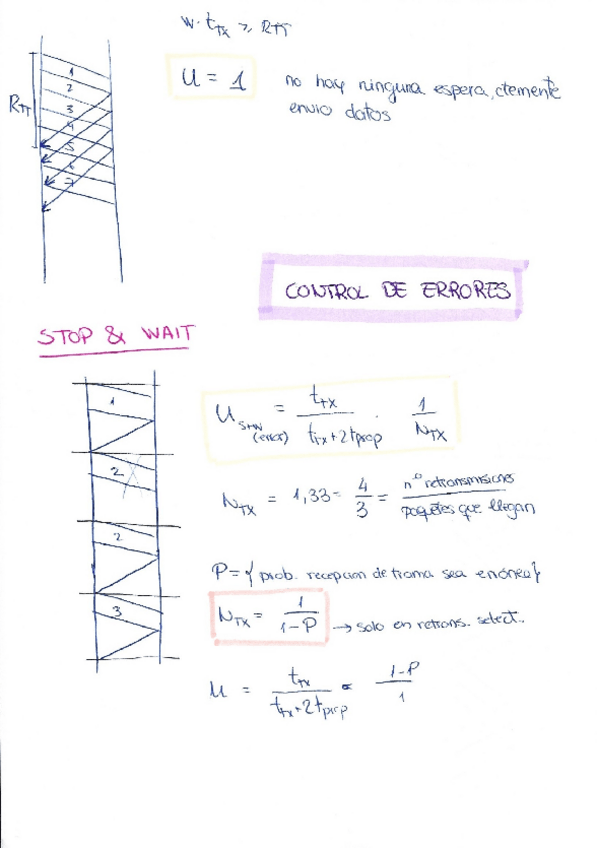 W · tTX ≥ RTT
U = 1
no hay ninguna espera, ctemente
envio datos
RTT
1
2
3
4
5
6
7
CONTROL DE ERRORES
STOP & WAIT
U S+W (error) = tTX / (tTX + 2tprop) · 1 / NTX
NTX = 1,33 = 4/3 = nº retransmisiones / paquetes que llegan
1
2
2
3
P = { prob. recepcion de trama sea errónea }
NTX = 1 / (1-P) → solo en retrans. select.
U = tTX / (tTX + 2tprop) · (1-P) / 1